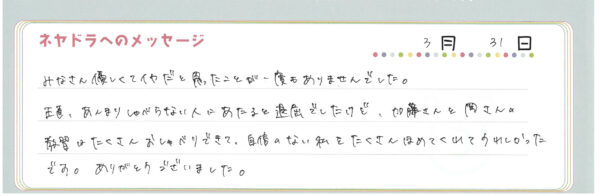 ネヤドラへのメッセージ
3月 31日
みなさん優しくてイヤだと思ったことが一度もありませんでした。
正直、あんまりしゃべらない人にあたると退屈でしたけど、加藤さんと岡さんの
教習はたくさんおしゃべりできて、自信のない私をたくさんほめてくれてうれしかった
です。ありがとうございました。